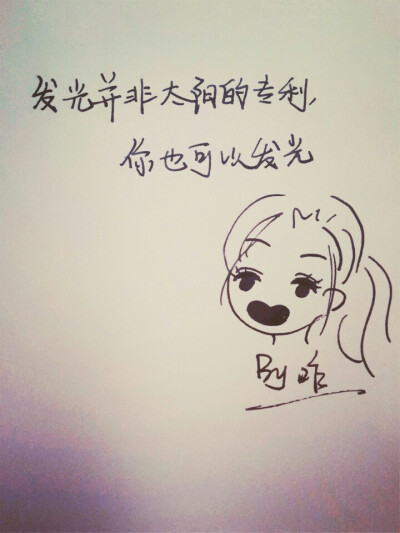 发光并非太阳的专利,
你也可以发光
By 咋